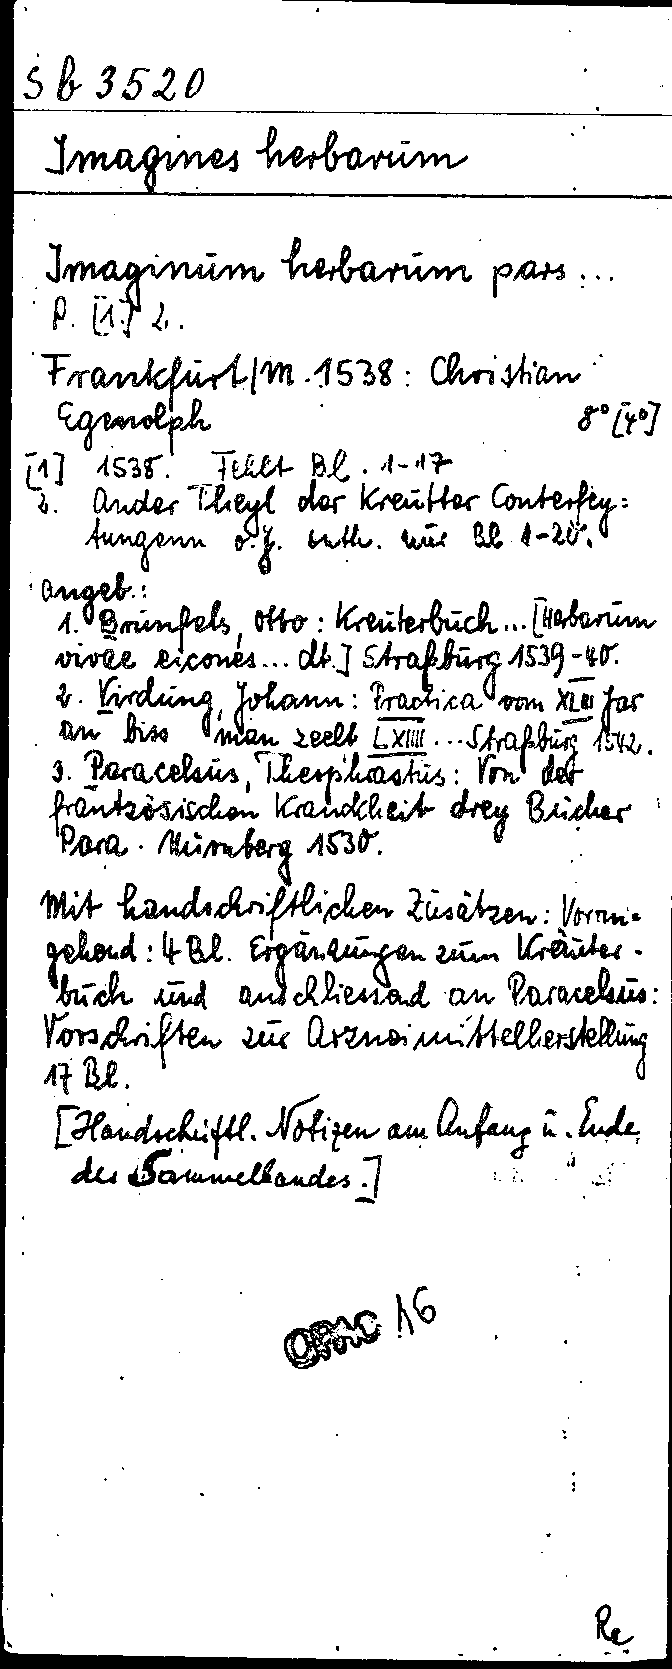 Sb 3520
Imagines herbarum
Imaginum herbarum pars...
P. [1.] 2.
Frankfurt/M. 1538: Christian
Egenolph 8° [4°]
[1] 1538. Fehlt Bl. 1-17
2. Ander Theyl der Kreutter Conterfey=
tungenn o.J. enth. nur Bl 1-20.
angeb.:
1. Brunfels, Otto: Kreuterbuch... [Herbarum
vivae eicones... dt.] Straßburg 1539-40.
2. Virdung, Johann: Practica vom XLIII Jar
an biss man zeelt LXIIII... Straßburg 1542.
3. Paracelsus, Theophrastus: Von der
fräntzösischen Kranckheit drey Bücher
Para. Nürnberg 1530.
Mit handschriftlichen Zusätzen: Voran=
gehend: 4 Bl. Ergänzungen zum Kräuter-
buch und anschliessend an Paracelsus:
Vorschriften zur Arzneimittelherstellung
17 Bl.
[Handschriftl. Notizen am Anfang u. Ende
des Sammelbandes.]
OPAC 16
Re